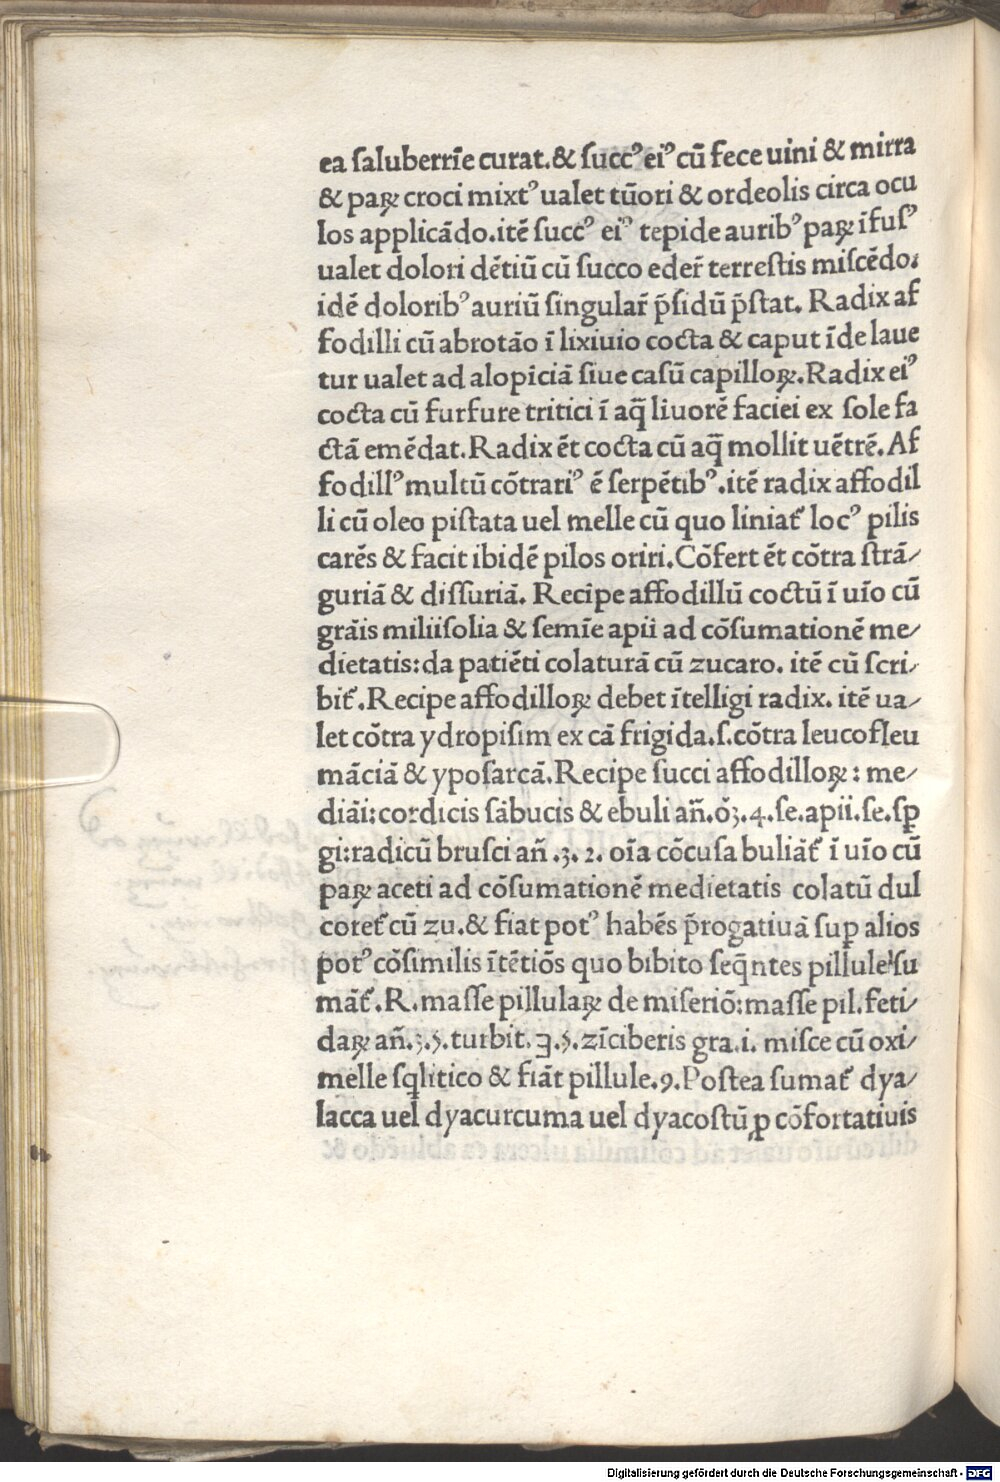 ea saluberrīe curat.& succꝰ eiꝰ cū fece uini & mirra
& paꝝ croci mixtꝰ ualet tūori & ordeolis circa ocu
los applicādo.itē succꝰ eiꝰ tepide auribꝰ paꝝ īfusꝰ
ualet dolori dētiū cū succo eder̄ terrestis miscēdo:
idē doloribꝰ auriū singular̄ p̄sidū p̄stat. Radix af
fodilli cū abrotāo ī lixiuio cocta & caput īde laue
tur ualet ad alopiciā siue casū capilloꝝ.Radix eiꝰ
cocta cū furfure tritici ī aq̄ liuorē faciei ex sole fa
ctā emēdat.Radix ēt cocta cū aq̄ mollit uētrē.Af
fodillꝰ multū cōtrariꝰ ē serpētibꝰ.itē radix affodil
li cū oleo pistata uel melle cū quo liniat᷑ locꝰ pilis
carēs & facit ibidē pilos oriri.Cōfert ēt cōtra strā⸗
guriā & dissuriā. Recipe affodillū coctū ī uīo cū
grāis miliisolia & semīe apii ad cōsumationē me⸗
dietatis:da patiēti colaturā cū zucaro. itē cū scri⸗
bit᷑.Recipe affodilloꝝ debet ītelligi radix. itē ua⸗
let cōtra ydropisim ex cā frigida.s.cōtra leucofleu
māciā & yposarcā.Recipe succi affodilloꝝ: me⸗
diāi:cordicis sābucis & ebuli an̄.ō℥.4.se.apii.se.sꝑ
gi:radicū brusci an̄ .℥.2.oīa cōcusa buliāt᷑ ī uīo cū
paꝝ aceti ad cōsumationē medietatis colatū dul
coret᷑ cū zu.& fiat potꝰ habēs p̄rogatiuā suꝑ alios
potꝰ cōsimilis ītētiōs quo bibito seq̄ntes pillule su
māt᷑.R.masse pillulaꝝ de miseriō:masse pil.feti⸗
daꝝ an̄.℥.5.turbit.Ʒ.5.zīciberis gra.i. misce cū oxi⸗
melle sq̄litico & fiāt pillule.9.Postea sumat᷑ dya⸗
lacca uel dyacurcuma uel dyacostū ꝓ cōfortatiuis
Digitalisierung gefördert durch die Deutsche Forschungsgemeinschaft - DFG